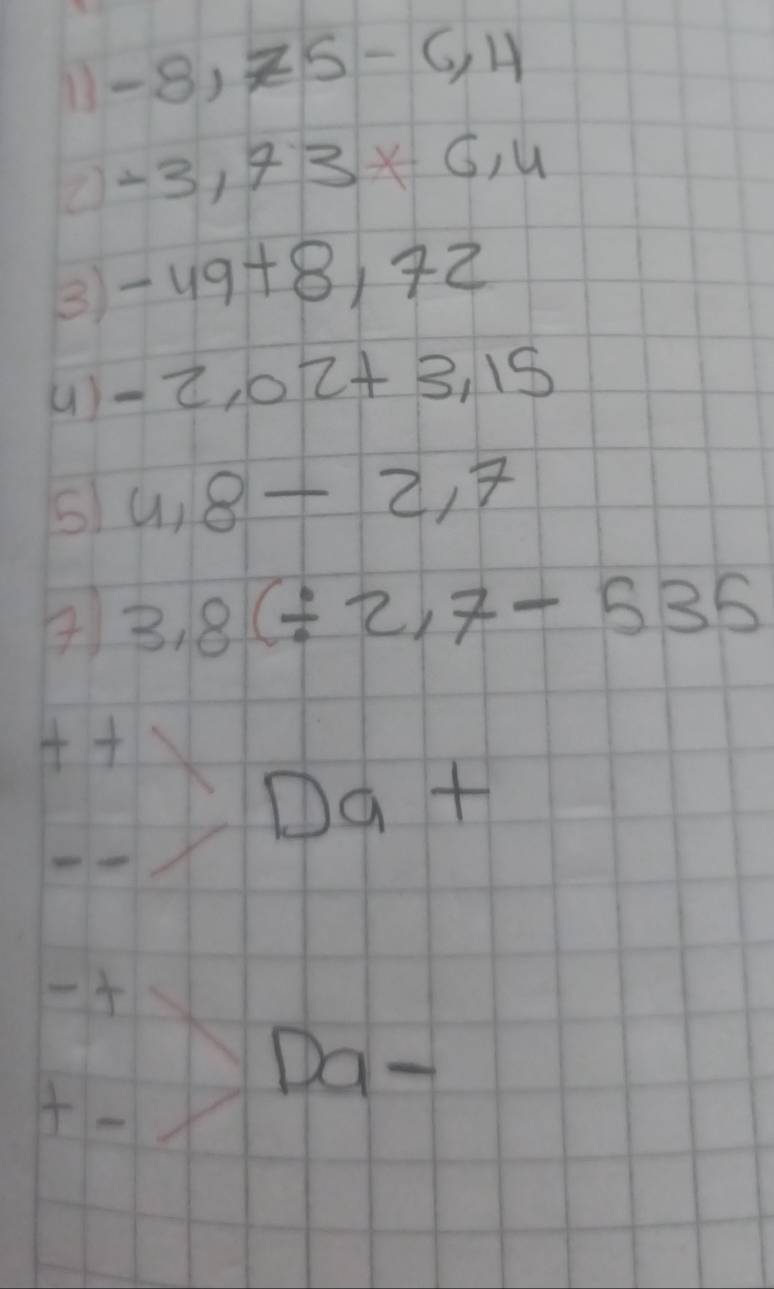 1) -8,75 - 6,4
2) -3,73 × 6,4
3) -49+8,72
4) -2,02+ 3,15
5) 4,8 - 2,7
7) 3,8 (÷ 2,7 - 535
+ +
Da +
- -
- +
Da -
+ -